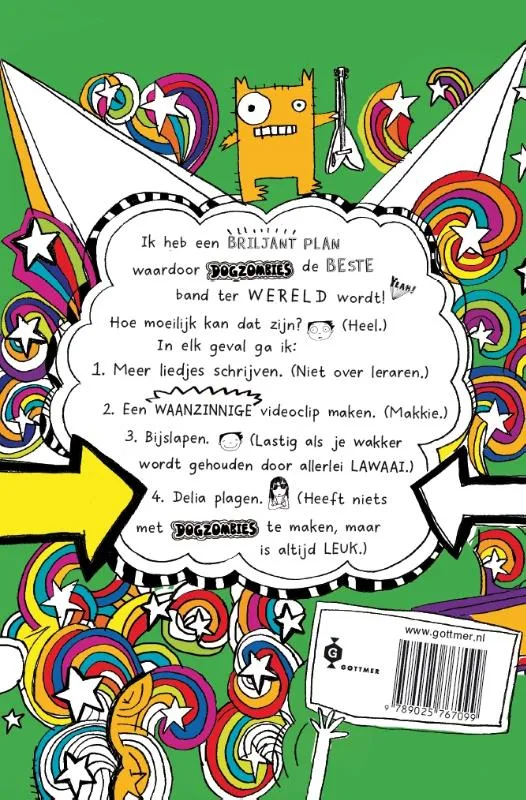 Ik heb een BRILJANT PLAN
waardoor DOGZOMBIES de BESTE
band ter WERELD wordt!
YEAH!
Hoe moeilijk kan dat zijn? (Heel.)
In elk geval ga ik:
1. Meer liedjes schrijven. (Niet over leraren.)
2. Een WAANZINNIGE videoclip maken. (Makkie.)
3. Bijslapen. (Lastig als je wakker
wordt gehouden door allerlei LAWAAI.)
4. Delia plagen. (Heeft niets
met DOGZOMBIES te maken, maar
is altijd LEUK.)
www.gottmer.nl
G
GOTTMER
9 789025 767099